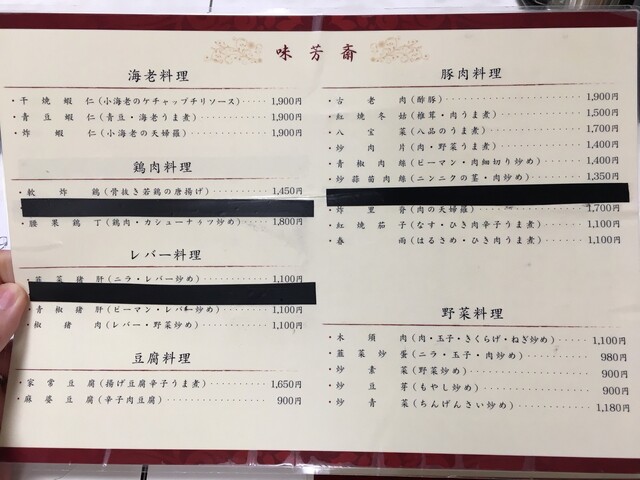 味芳斎
海老料理
・干焼蝦仁(小海老のケチャップチリソース)····· 1,900円
・青豆蝦仁(青豆・海老うま煮)············ 1,900円
・炸蝦仁(小海老の天婦羅)·············· 1,900円
鶏肉料理
・軟炸鶏(骨抜き若鶏の唐揚げ)··········· 1,450円
・腰果鶏丁(鶏肉・カシューナッツ炒め)······· 1,800円
レバー料理
・韮菜猪肝(ニラ・レバー炒め)··········· 1,100円
・青椒猪肝(ピーマン・レバー炒め)········· 1,100円
・椒猪肉(レバー・野菜炒め)············ 1,100円
豆腐料理
・家常豆腐(揚げ豆腐辛子うま煮)·········· 1,650円
・麻婆豆腐(辛子肉豆腐)··············· 900円
豚肉料理
・古老肉(酢豚)··················· 1,900円
・紅焼冬菇(椎茸・肉うま煮)············ 1,500円
・八宝菜(八品のうま煮)·············· 1,700円
・炒肉片(肉・野菜うま煮)············· 1,400円
・青椒肉絲(ピーマン・肉細切り炒め)········ 1,400円
・炒蒜苗肉絲(ニンニクの茎・肉炒め)········ 1,350円
・炸里脊(肉の天婦羅)··············· 1,700円
・紅焼茄子(なす・ひき肉辛子うま煮)········ 1,100円
・春雨(はるさめ・ひき肉うま煮)·········· 1,100円
野菜料理
・木須肉(肉・玉子・きくらげ・ねぎ炒め)······ 1,100円
・韮菜炒蛋(ニラ・玉子・肉炒め)··········· 980円
・炒素菜(野菜炒め)················· 900円
・炒豆芽(もやし炒め)················ 900円
・炒青菜(ちんげんさい炒め)············ 1,180円